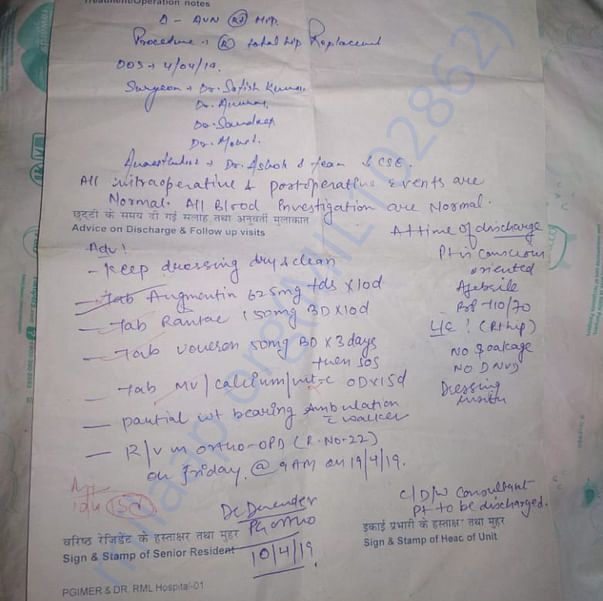 Treatment/Operation notes
Δ - AVN (Rt) Hip.
Procedure → (R) total hip Replacement
DOS → 4/04/19.
Surgeon → Dr. Satish Kumar
Dr. Anurag
Dr. Sandeep
Dr. Mohit
Anaesthetist → Dr. Ashok & team CSE.
All intraoperative & postoperative Events are
Normal. All Blood Investigation are Normal.
छुट्टी के समय दी गई सलाह तथा अनुवर्ती मुलाकात
Advice on Discharge & Follow up visits
Adv!
- Keep dressing dry & clean
- Tab Augmentin 625mg tds x 10d
- Tab Rantac 150mg BD x 10d
- Tab Voveran 50mg BD x 3days
then SOS
- Tab MV/calcium/vit-c OD x 15d
- partial wt bearing Ambulation
c walker
- R/v in ortho-OPD (R.No-22)
on Friday @ 9AM on 19/4/19.
At time of discharge
Pt is conscious
oriented
Afebrile
BP 110/70
L/E ! (Rt hip)
No soakage
No DNVD
Dressing
insitu
15d
Dr Devender
PG ortho
10/4/19
C/D/W Consultant
Pt to be discharged.
वरिष्ठ रेजिडेंट के हस्ताक्षर तथा मुहर
Sign & Stamp of Senior Resident
इकाई प्रभारी के हस्ताक्षर तथा मुहर
Sign & Stamp of Heac of Unit
PGIMER & DR. RML Hospital-01